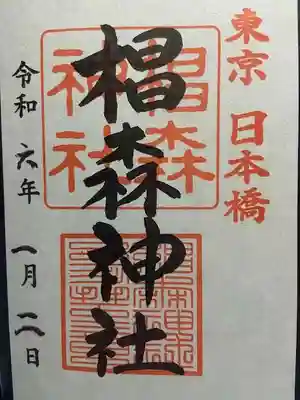 東京 日本橋
椙森神社
椙森
神社
令和 六年 一月 日